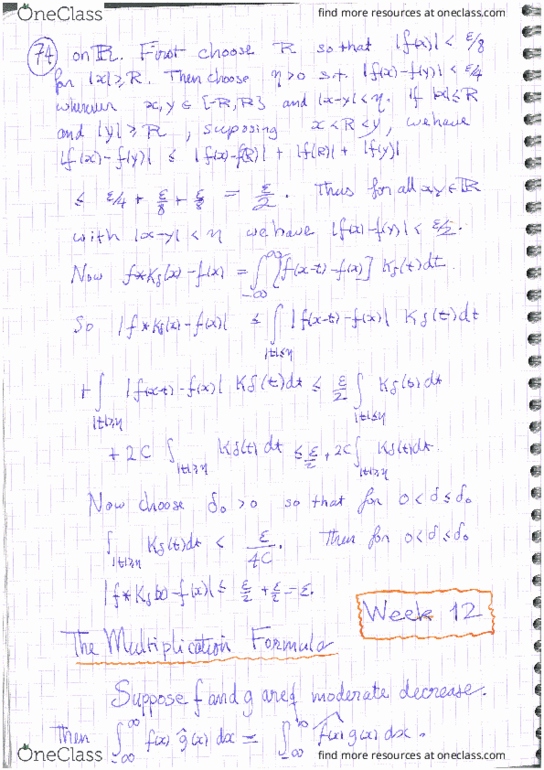 OneClass
find more resources at oneclass.com
74 on ℝ. First choose R so that |f(x)| < ε/8
for |x| ≥ R. Then choose η > 0 s.t. |f(x)-f(y)| < ε/4
whenever x, y ∈ [-R, R] and |x-y| < η. If |x| ≤ R
and |y| ≥ R, supposing x < R < y, we have
|f(x)-f(y)| ≤ |f(x)-f(R)| + |f(R)| + |f(y)|
≤ ε/4 + ε/8 + ε/8 = ε/2. Thus for all x,y ∈ ℝ
with |x-y| < η we have |f(x)-f(y)| < ε/2.
Now f*K_δ(x)-f(x) = ∫_{-∞}^{∞} [f(x-t)-f(x)] K_δ(t)dt.
So |f*K_δ(x)-f(x)| ≤ ∫_{|t|≤η} |f(x-t)-f(x)| K_δ(t)dt
+ ∫_{|t|≥η} |f(x-t)-f(x)| K_δ(t)dt ≤ ε/2 ∫_{|t|≤η} K_δ(t)dt
+ 2C ∫_{|t|≥η} K_δ(t)dt ≤ ε/2 + 2C ∫_{|t|≥η} K_δ(t)dt.
Now choose δ₀ > 0 so that for 0 < δ ≤ δ₀
∫_{|t|≥η} K_δ(t)dt < ε/4C. Then for 0 < δ ≤ δ₀
|f*K_δ(x)-f(x)| ≤ ε/2 + ε/2 = ε.
Week 12
The Multiplication Formula
Suppose f and g are of moderate decrease.
Then ∫_{-∞}^{∞} f(x) ĝ(x) dx = ∫_{-∞}^{∞} f̂(x) g(x) dx.
OneClass
find more resources at oneclass.com